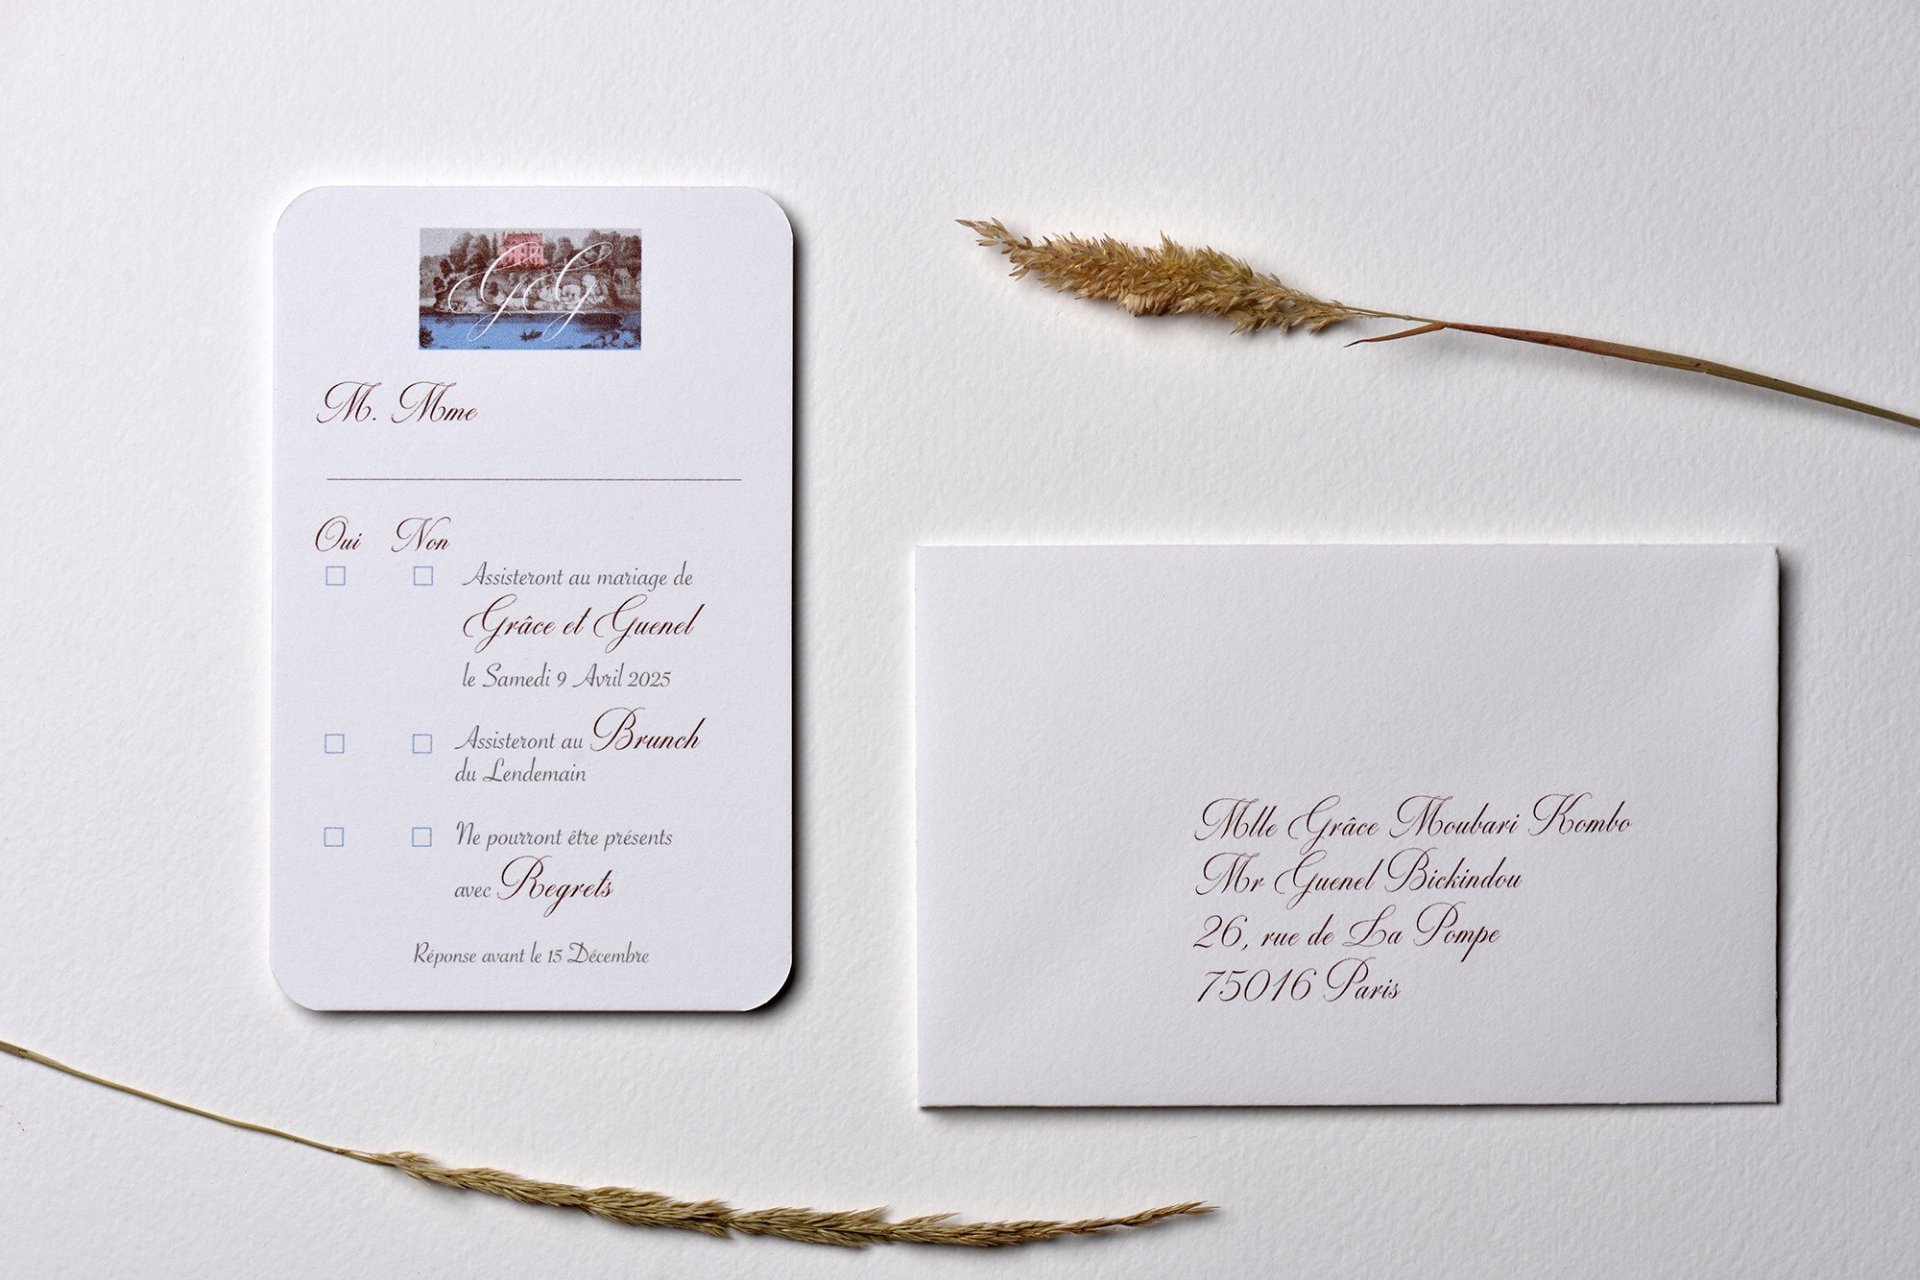 GG
M. Mme
Oui Non
Assisteront au mariage de
Grâce et Guenel
le Samedi 9 Avril 2025
Assisteront au Brunch
du Lendemain
Ne pourront être présents
avec Regrets
Réponse avant le 15 Décembre
Mlle Grâce Moubari Kombo
Mr Guenel Bickindou
26, rue de La Pompe
75016 Paris